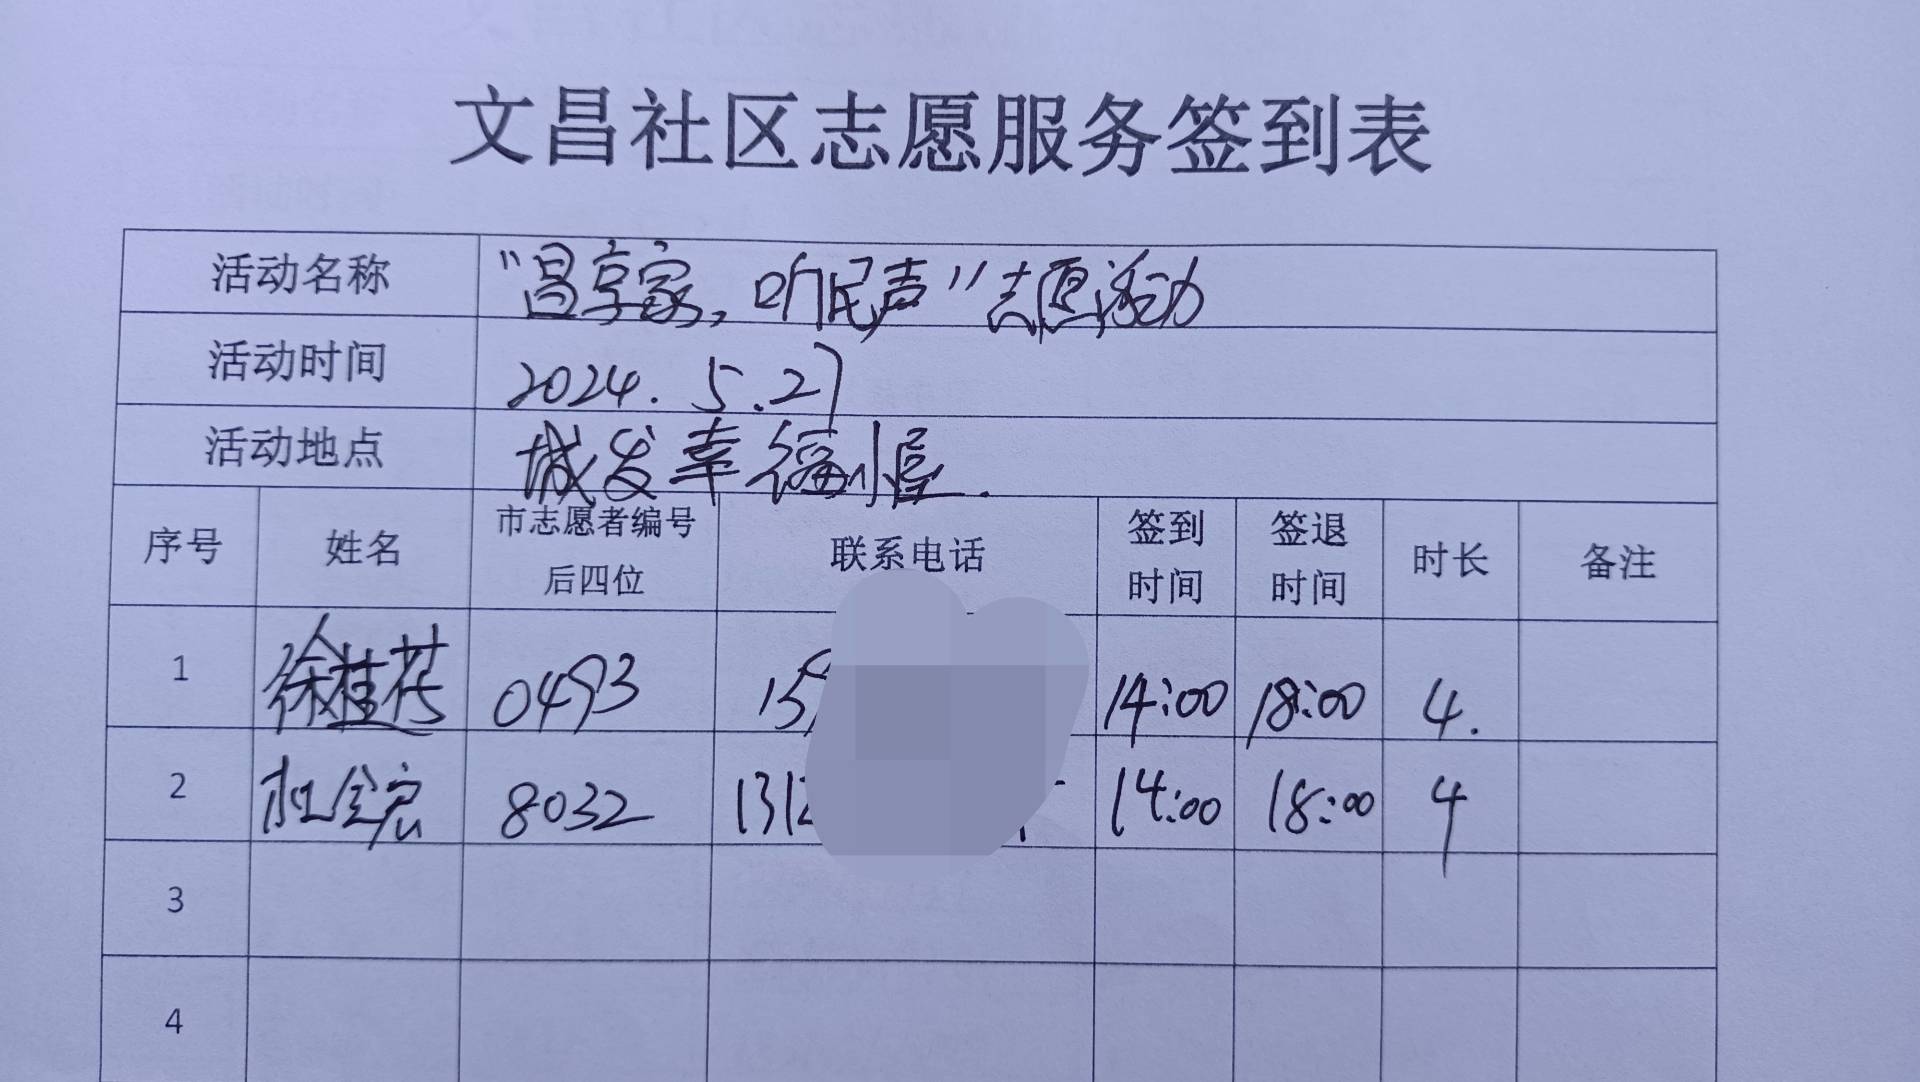 文昌社区志愿服务签到表
活动名称 “昌享家，听民声”志愿活动
活动时间 2024.5.27
活动地点 城发幸福小屋.
序号 姓名 市志愿者编号后四位 联系电话 签到时间 签退时间 时长 备注
1 徐桂芬 0493 159 14:00 18:00 4.
2 8032 1312 14:00 18:00 4
3
4